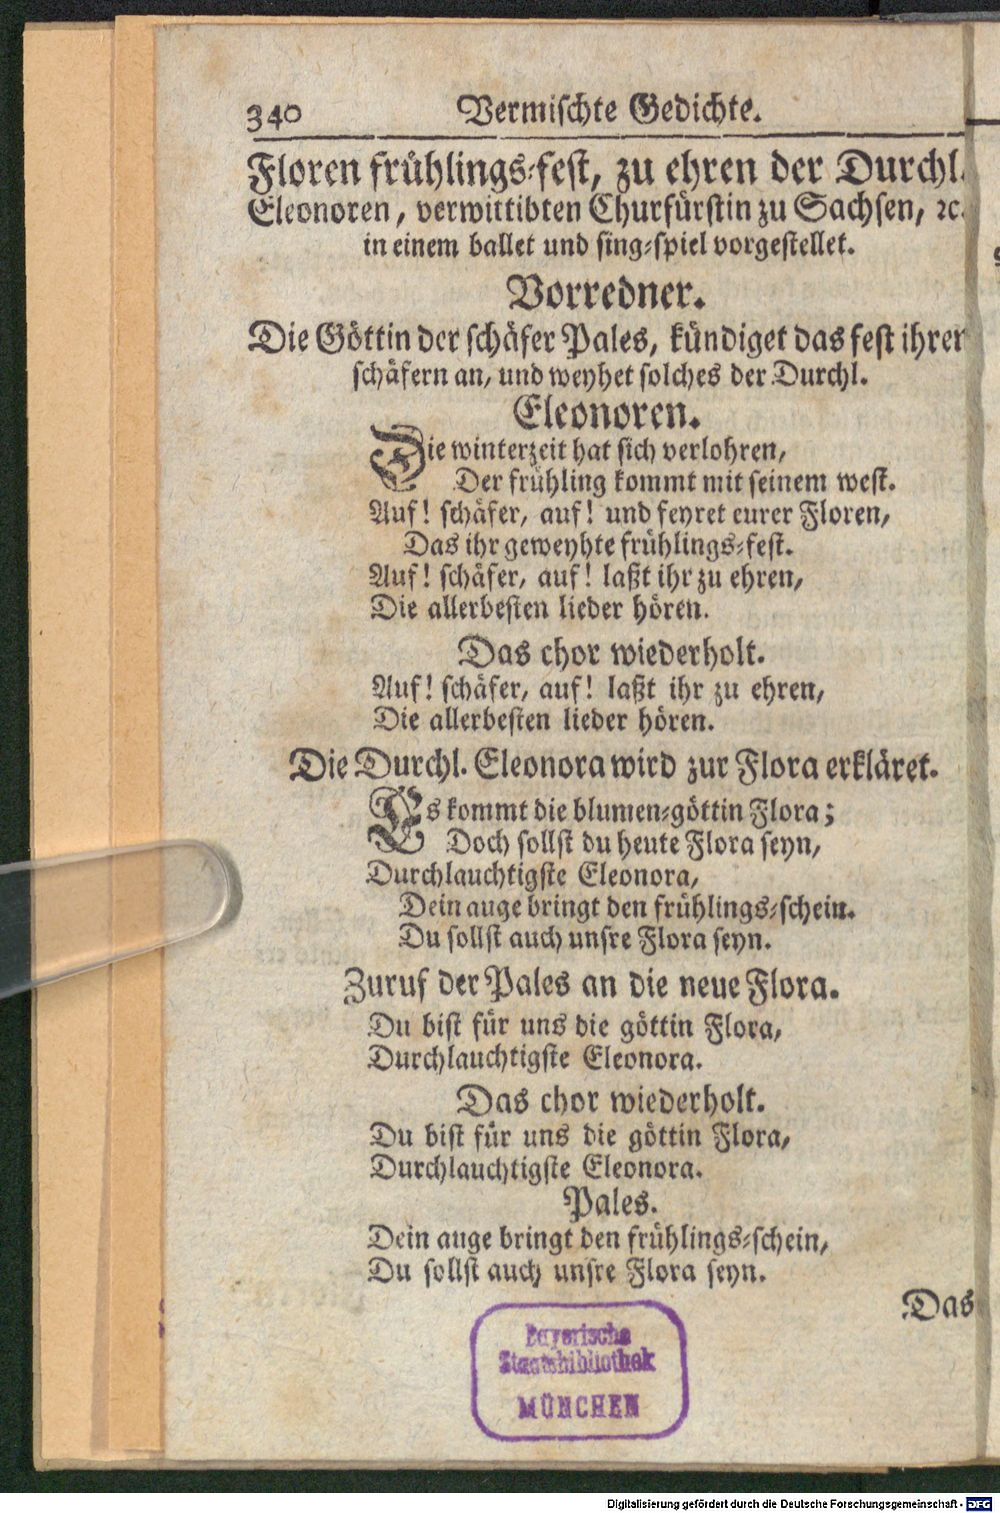 340 Vermischte Gedichte.
Floren frühlings-fest, zu ehren der Durchl.
Eleonoren, verwittibten Churfürstin zu Sachsen, ꝛc.
in einem ballet und sing-spiel vorgestellet.
Vorredner.
Die Göttin der schäfer Pales, kündiget das fest ihren
schäfern an, und weyhet solches der Durchl.
Eleonoren.
Die winterzeit hat sich verlohren,
Der frühling kommt mit seinem west.
Auf! schäfer, auf! und feyret eurer Floren,
Das ihr geweyhte frühlings-fest.
Auf! schäfer, auf! laßt ihr zu ehren,
Die allerbesten lieder hören.
Das chor wiederholt.
Auf! schäfer, auf! laßt ihr zu ehren,
Die allerbesten lieder hören.
Die Durchl. Eleonora wird zur Flora erkläret.
Es kommt die blumen-göttin Flora;
Doch sollst du heute Flora seyn,
Durchlauchtigste Eleonora,
Dein auge bringt den frühlings-schein.
Du sollst auch unsre Flora seyn.
Zuruf der Pales an die neue Flora.
Du bist für uns die göttin Flora,
Durchlauchtigste Eleonora.
Das chor wiederholt.
Du bist für uns die göttin Flora,
Durchlauchtigste Eleonora.
Pales.
Dein auge bringt den frühlings-schein,
Du sollst auch unsre Flora seyn.
Das
Bayerische
Staatsbibliothek
MÜNCHEN
Digitalisierung gefördert durch die Deutsche Forschungsgemeinschaft - DFG